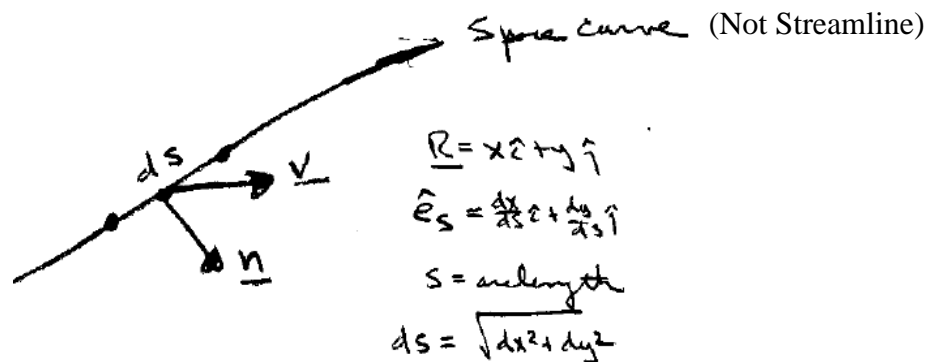 Space curve (Not Streamline)
ds
V
n
R = xî + yĵ
ê_s = dx/ds î + dy/ds ĵ
s = arclength
ds = √(dx² + dy²)